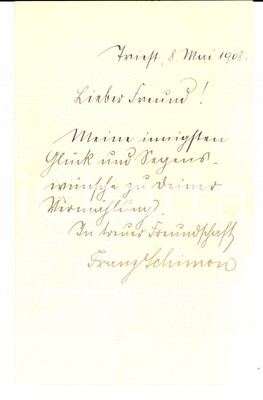 Triest, 8. Mai 1908.
Lieber Freund!
Meine innigsten
Glück und Segens-
wünsche zu Deiner
Vermählung.
In treuer Freundschaft
Franz Schimon